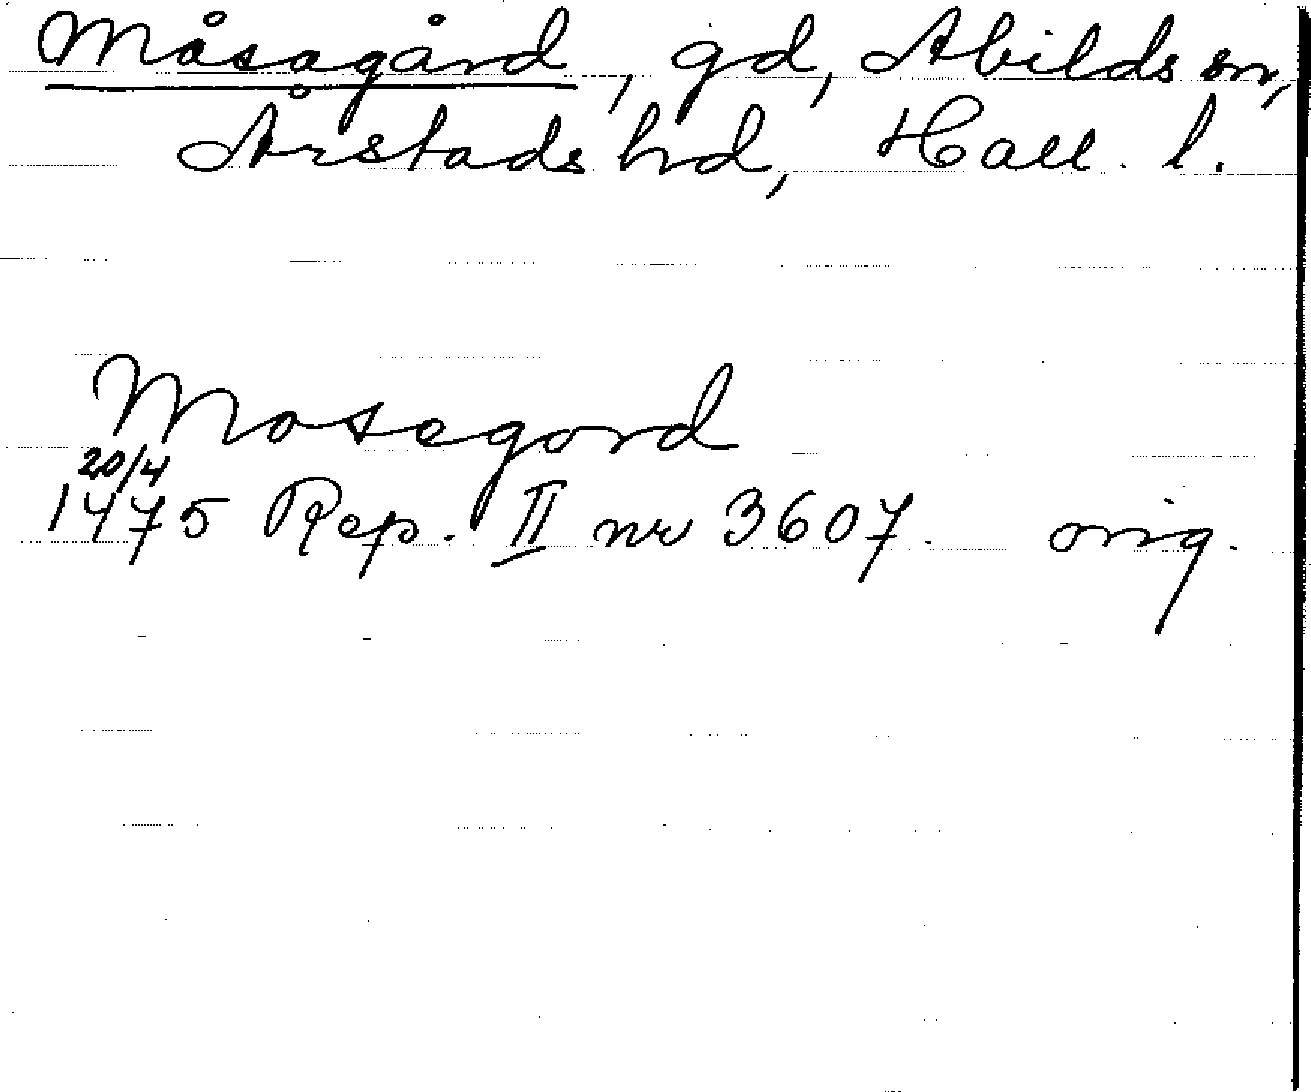 Måsagård, gd, Abilds sn,
Årstads hd, Hall. l.
Mosegord
20/4
1475 Rep. II nr 3607. orig.